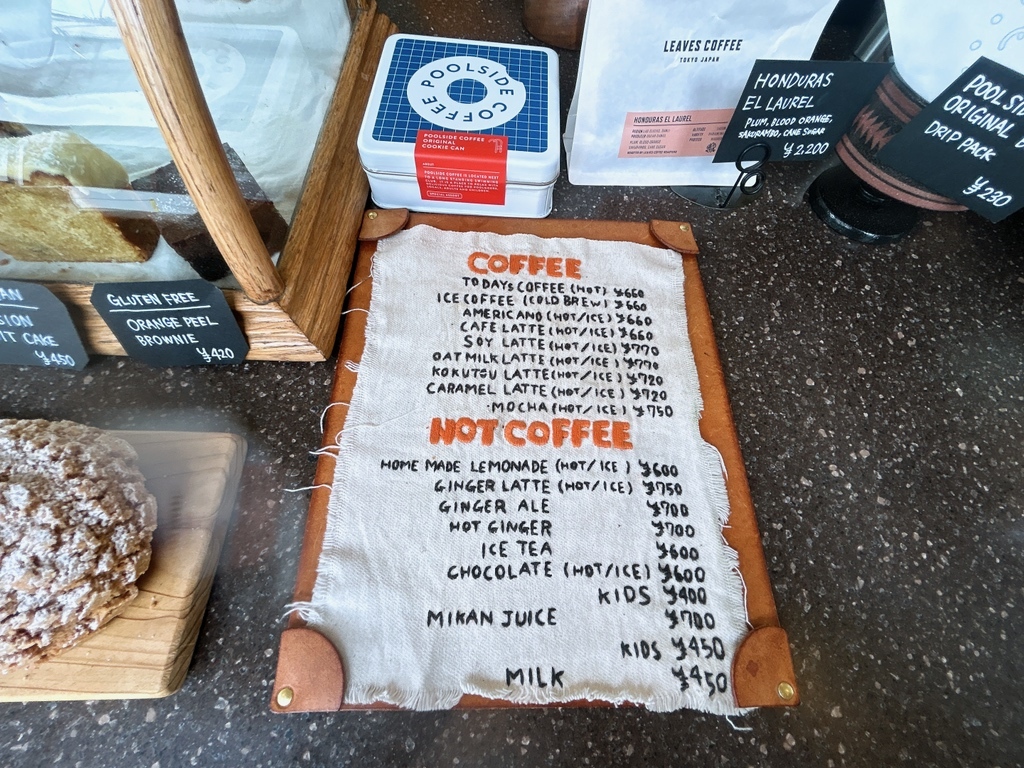 POOLSIDE COFFEE
POOLSIDE COFFEE
ORIGINAL
COOKIE CAN
LEAVES COFFEE
TOKYO JAPAN
HONDURAS EL LAUREL
HONDURAS
EL LAUREL
PLUM, BLOOD ORANGE,
SAKURAMBO, CANE SUGAR
¥2,200
ORIGINAL
DRIP PACK
¥230
¥450
GLUTEN FREE
ORANGE PEEL
BROWNIE
¥420
COFFEE
TODAYS COFFEE (HOT) ¥660
ICE COFFEE (COLD BREW) ¥660
AMERICANO (HOT/ICE) ¥660
CAFE LATTE (HOT/ICE) ¥660
SOY LATTE (HOT/ICE) ¥770
OAT MILK LATTE (HOT/ICE) ¥770
KOKUTOU LATTE (HOT/ICE) ¥720
CARAMEL LATTE (HOT/ICE) ¥720
MOCHA (HOT/ICE) ¥750
NOT COFFEE
HOME MADE LEMONADE (HOT/ICE) ¥600
GINGER LATTE (HOT/ICE) ¥750
GINGER ALE ¥700
HOT GINGER ¥700
ICE TEA ¥600
CHOCOLATE (HOT/ICE) ¥600
KIDS ¥400
MIKAN JUICE ¥700
KIDS ¥450
MILK ¥450